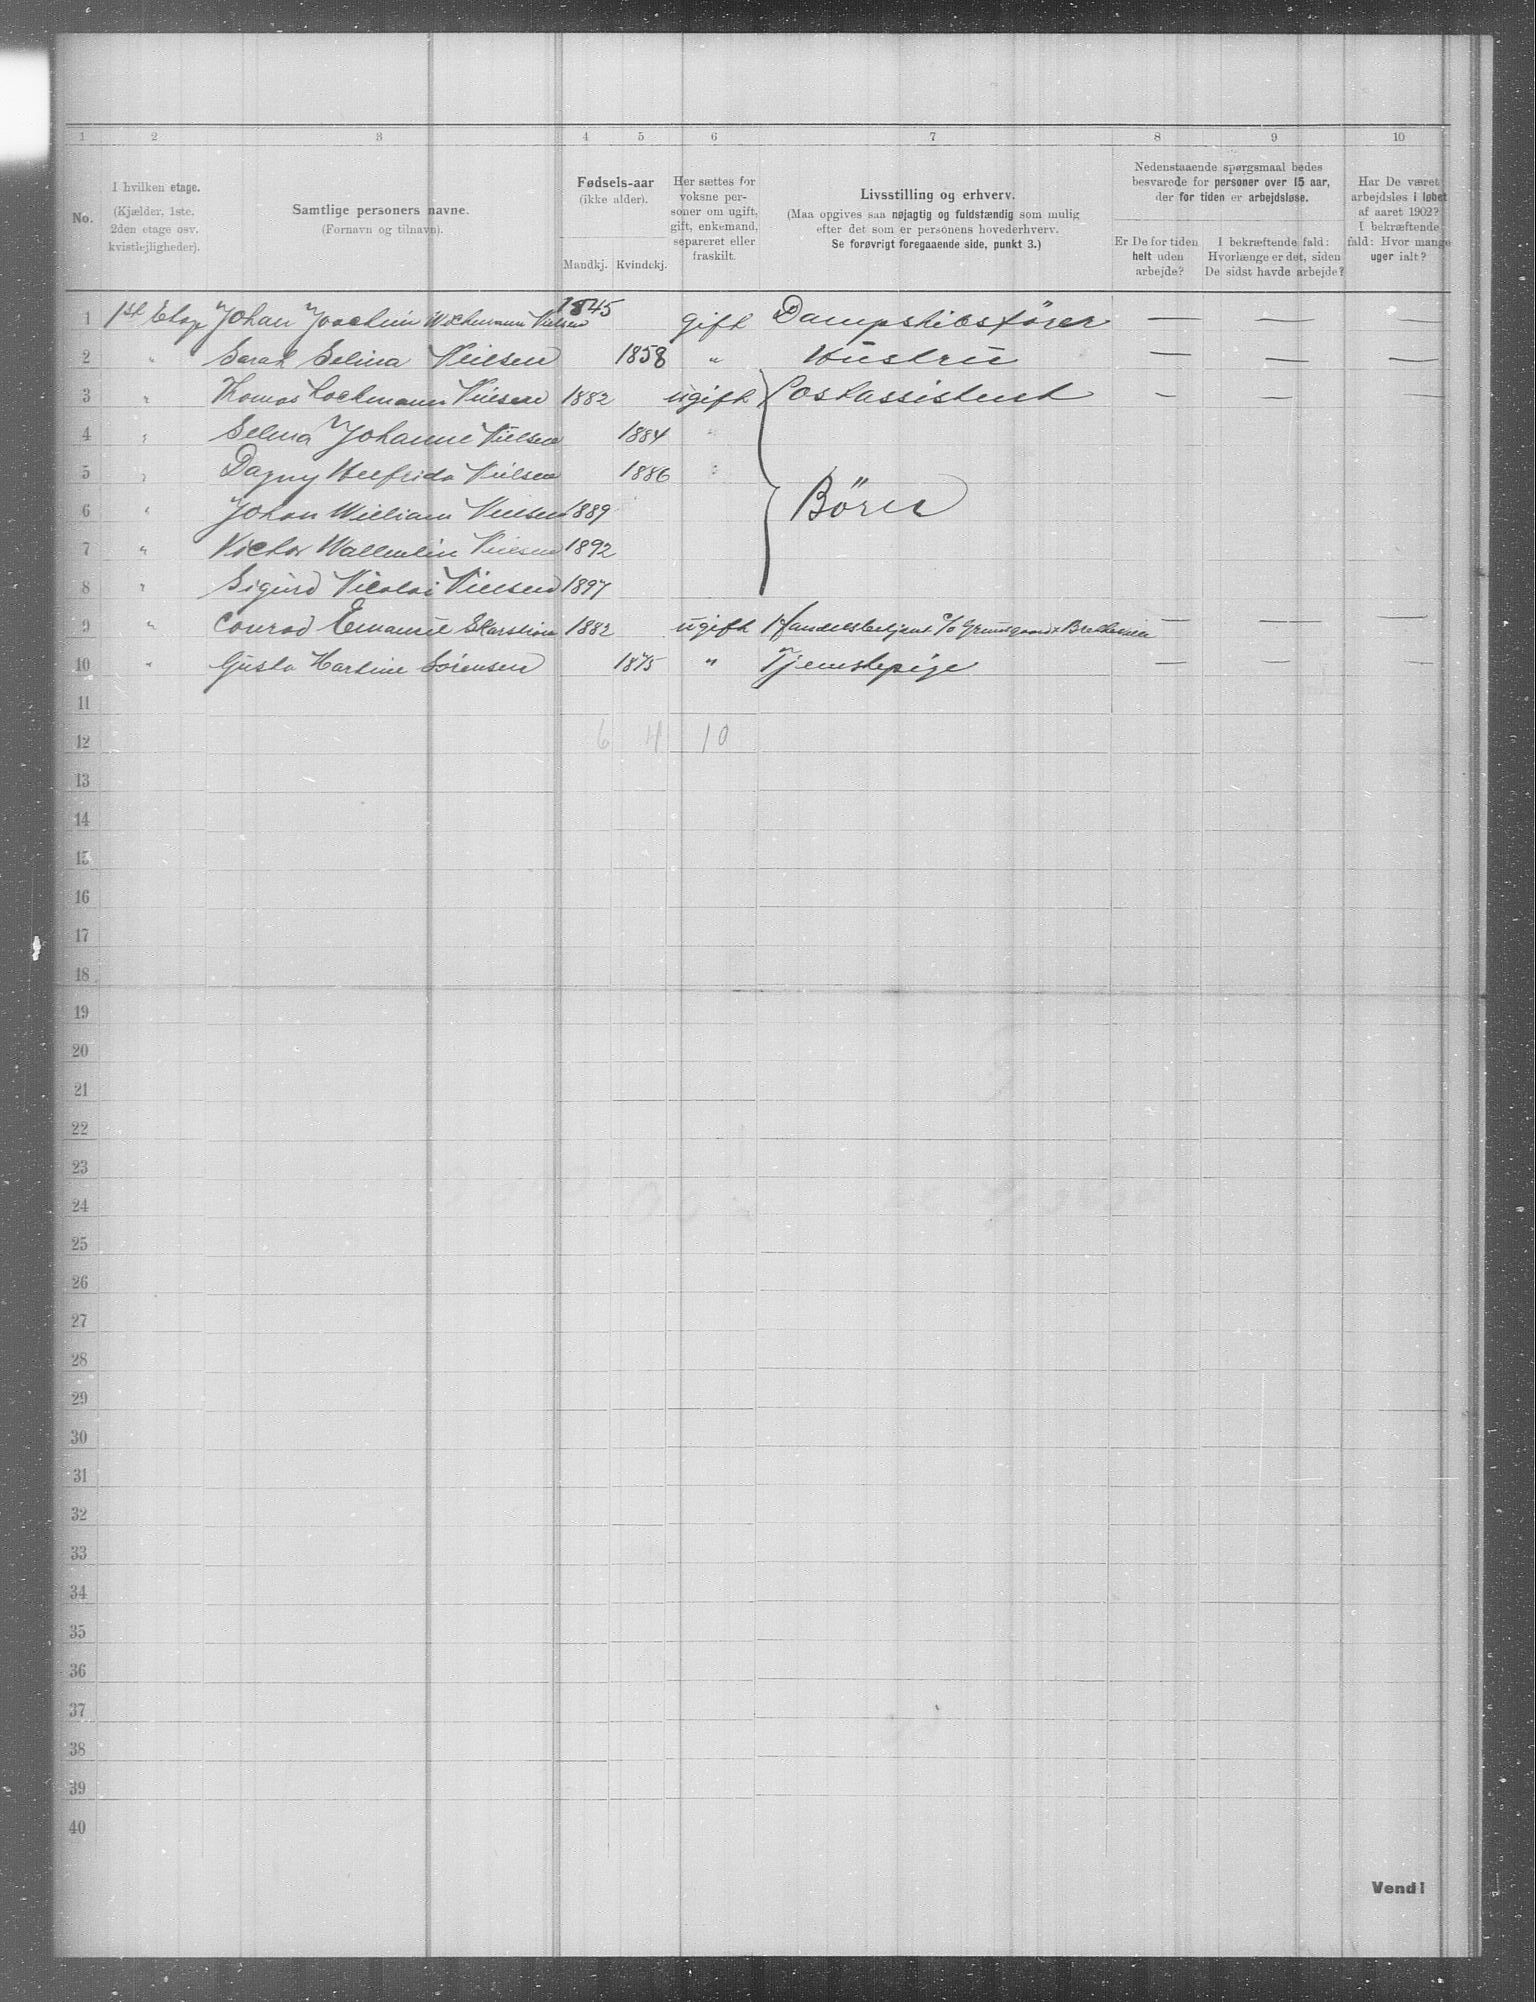 1 2 3 4 5 6 7 8 9 10
No.
I hvilken etage.
(Kjælder, 1ste,
2den etage osv.
kvistlejligheder).
Samtlige personers navne.
(Fornavn og tilnavn).
Fødsels-aar
(ikke alder).
Mandkj. Kvindekj.
Her sættes for
voksne per-
soner om ugift,
gift, enkemand,
separeret eller
fraskilt.
Livsstilling og erhverv.
(Maa opgives saa nøjagtig og fuldstændig som mulig
efter det som er personens hovederhverv.
Se forøvrigt foregaaende side, punkt 3.)
Nedenstaaende spørgsmaal bedes
besvarede for personer over 15 aar,
der for tiden er arbejdsløse.
Er De for tiden
helt uden
arbejde?
I bekræftende fald:
Hvorlænge er det, siden
De sidst havde arbejde?
Har De været
arbejdsløs i løbet
af aaret 1902?
I bekræftende
fald: Hvor mange
uger ialt?
1 1st Etage Johan Joachim Wichmann Nielsen 1845 gift Dampskibsfører — — —
2 " Sarah Selina Nielsen 1858 " Hustru — — —
3 " Thomas Nielsen 1882 ugift Postassistent — — —
4 " Selina Johanne Nielsen 1884 "
5 " Dagny Helfrida Nielsen 1886 "
6 " Johan William Nielsen 1889 Børn
7 " Victor Nielsen 1892
8 " Sigurd Nicolai Nielsen 1897
9 " Conrad Emanuel 1882 ugift Handelsbetjent c/o — — —
10 " Gusta Martine Sørensen 1875 " Tjenstepige — — —
11
12 6 4 10
13
14
15
16
17
18
19
20
21
22
23
24
25
26
27
28
29
30
31
32
33
34
35
36
37
38
39
40
Vend!